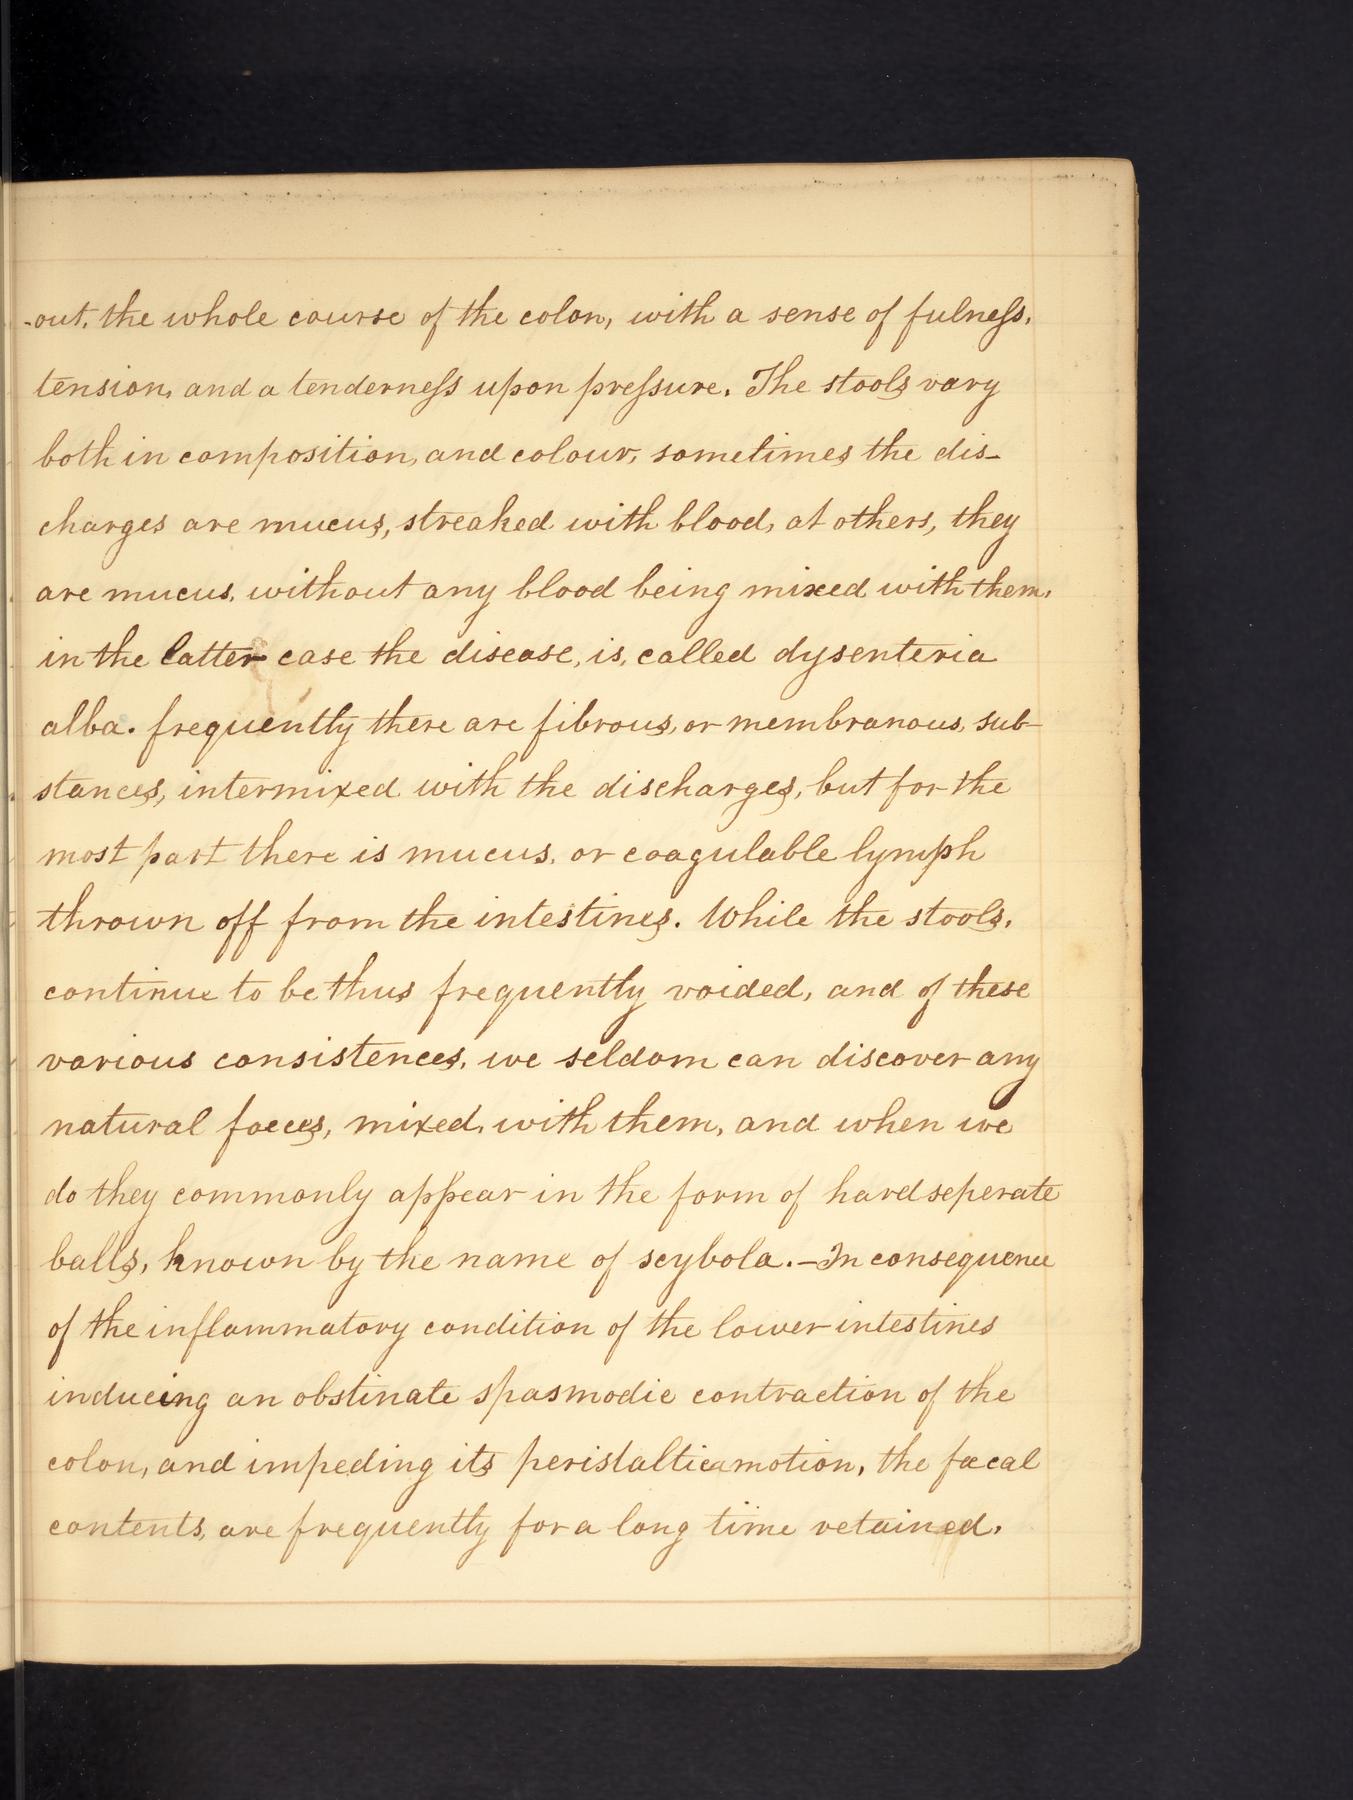 -out, the whole course of the colon, with a sense of fulneſs,
tension, and a tenderneſs upon preſsure. The stools vary
both in composition, and colour, sometimes the dis-
charges are mucus, streaked with blood, at others, they
are mucus, without any blood being mixed with them,
in the latter case the disease, is, called dysenteria
alba. frequently there are fibrous, or membranous, sub-
stances, intermixed with the discharges, but for the
most part there is mucus, or coagulable lymph
thrown off from the intestines. While the stools,
continue to be thus frequently voided, and of these
various consistences, we seldom can discover any
natural faeces, mixed, with them, and when we
do they commonly appear in the form of hard seperate
balls, known by the name of scybola. — In consequence
of the inflammatory condition of the lower intestines
inducing an obstinate spasmodic contraction of the
colon, and impeding its peristaltic motion, the fœcal
contents, are frequently for a long time retained,